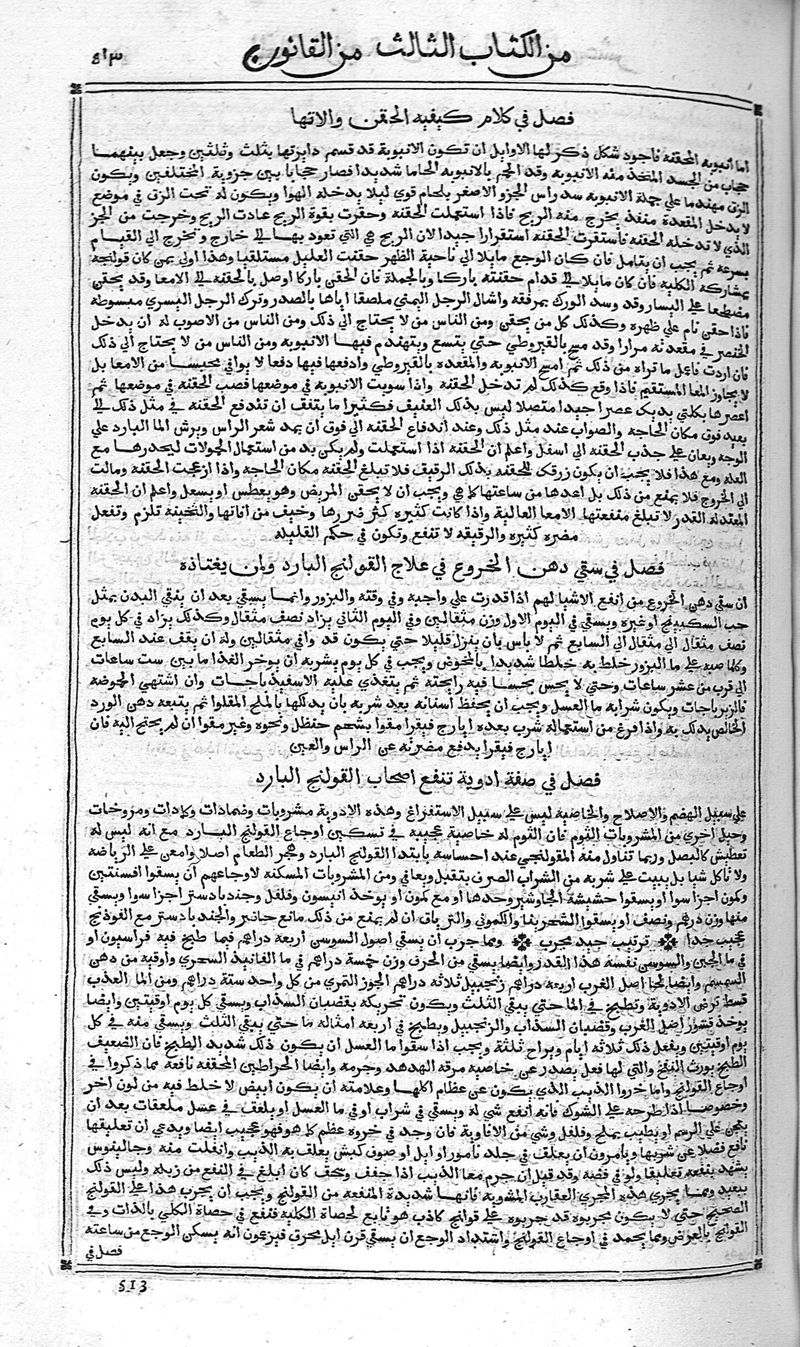 من الكتاب الثالث من القانون
٥١٣
فصل في كلام كيفيه الحقن والاتها
اما انبوبه المحقنه فاجود شكل ذكر لها الاوايل ان تكون الانبوبة قد قسم دايرتها بثلث وثلثين وجعل بينهما
حجاب من الجسد المتخذ منه الانبوبه وقد الحم بالانبوبه الحاما شديدا فصار حجابا بين جزويه المختلفين ويكون
الزق مهندما علي جملة الانبوبه سد راس الجزو الاصغر بلحام قوي ليلا يدخله الهوا ويكون له تحت الزق في موضع
لا يدخل المقعدة منفذ يخرج منه الريح فاذا استعملت الحقنه وحقرت بقوة الريح عادت الريح وخرجت من الجز
الذي لا تدخله الحقنه فاستقرت الحقنه استقرارا جيدا لان الريح هي التي تعود بها الي خارج وتخرج الي القيام
بسرعه ثم يجب ان يتامل فان كان الوجع مايلا الي ناحية الظهر حقنت العليل مستلقيا وهذا اولي بمن كان قولنجه
بمشاركة الكليه فان كان مايلا الي قدام حقنته باركا وبالجملة فان الحقن باركا اوصل بالحقنه الي الامعا وقد يحقن
مضطجعا علي اليسار وقد وسد الورك بمرفقه واشال الرجل اليمني ملصقا اياها بالصدر وترك الرجل اليسري مبسوطه
فاذا حقن نام علي ظهره وكذلك كل من يحقن ومن الناس من لا يحتاج الي ذلك ومن الناس من الاصوب له ان يدخل
الخنصر في مقعدته مرارا وقد مسح بالقيروطي حتي يتسع ويتهندم فيها الانبوبه ومن الناس من لا يحتاج الي ذلك
فان اردت فاعل ما تراه من ذلك ثم امسح الانبوبه والمقعده بالقيروطي وادفعها فيها دفعا لا يوافي محبسا من الامعا بل
لا يجاوز المعا المستقيم فاذا وقع كذلك لم تدخل الحقنه واذا سويت الانبوبه في موضعها فصب الحقنه في موضعها ثم
اعصرها بكلتي يديك عصرا جيدا متصلا ليس بذلك العنيف فكثيرا ما يتفق ان تندفع الحقنه في مثل ذلك الي
بعيد فوق مكان الحاجه والصواب عند مثل ذلك وعند اندفاع الحقنه الي فوق ان يمد شعر الراس ويرش الما البارد علي
الوجه ويعان علي جذب الحقنه الي اسفل واعلم ان الحقنه اذا استعملت ولم يكن بد من استعمال الحمولات ليحدرها مع
العله ومع هذا فلا يجب ان يكون زرقك للحقنه بذلك الرقيق فلا تبلغ الحقنه مكان الحاجه واذا ازعجت الحقنه ومالت
الي الخروج فلا يمنع من ذلك بل اعدها من ساعتها كما هي ويجب ان لا يحقن المريض وهو يعطس او يسعل واعلم ان الحقنه
المعتدله القدر لا تبلغ منفعتها الامعا العالية واذا كانت كثيره كثر ضررها وخيف من افاتها والثخينه تلزم وتفعل
مضره كثيره والرقيقه لا تنفع وتكون في حكم القليله
فصل في سقي دهن الخروع في علاج القولنج البارد ولمن يعتاذه
ان سقي دهن الخروع من انفع الاشيا لهم اذا قدرت علي واجبه وفي وقته والبزور وانما يسقي بعد ان ينقي البدن بمثل
حب السكبينج او غيره ويسقي في اليوم الاول وزن مثقالين وفي اليوم الثاني يزاد نصف مثقال وكذلك يزاد في كل يوم
نصف مثقال الي مثقال الي السابع ثم لا باس بان ينزل قليلا حتي يكون قد وافي مثقالين وله ان يقف عند السابع
وكلما صبه علي ما البزور خلط به خلطا شديدا بالمخوض ويجب في كل يوم يشربه ان يوخر الغذا ما بين ست ساعات
الي قرب من عشر ساعات وحتي لا يحس بحسا فيه رايحته ثم يتغذي عليه الاسفيذباجات وان اشتهي الحموضه
فالزيرباجات ويكون شرابه ما العسل ويجب ان يحفظ اسنانه بعد شربه بان يدلكها بالملح المقلوا ثم يتبعه دهن الورد
الخالص يدلك به واذا فرغ من استعماله شرب بعده ايارج فيقرا مقوا بشحم حنظل ونحوه وغير مقوا ان لم يحتج اليه فان
ايارج فيقرا يدفع مضرته عن الراس والعين
فصل في صفة ادوية تنفع اصحاب القولنج البارد
علي سبيل الهضم والاصلاح والخاصيه ليس علي سبيل الاستفراغ وهذه الادوية مشروبات وضمادات وكمادات ومروخات
وحيل اخري من المشروبات الثوم فان الثوم له خاصية عجيبه في تسكين اوجاع القولنج البارد مع انه ليس له
تعطيش كالبصل وربما تناول منه القولنجي عند احساسه بابتدا القولنج البارد وهجر الطعام اصلا وامعن علي الرياضه
ولا ياكل شيا بل يبيت علي شربه من الشراب الصرف بتقبل ويعافي ومن المشروبات المسكنه لاوجاعهم ان يسقوا افسنتين
وكمون اجزا سوا او يسقوا حشيشة الجاوشير وحدها او مع كمون او يوخذ انيسون وفلفل وجندبادستر اجزا سوا ويسقي
منها وزن درهم ونصف او يسقوا الشجرينا والكموني والترياق ان لم يمنع من ذلك مانع حاضر والجندبادستر مع الفوذنج
عجيب جدا ❊ ترتيب جيد مجرب ❊ ومما جرب ان يسقي اصول السوسن اربعة دراهم فيما طبخ فيه فراسيون او
في ما الجبن والسوسن نفسه هذا القدر وايضا يسقي من الحرف وزن خمسة دراهم في ما الفانيذ السحري واوقيه من دهن
السمسم وايضا لحا اصل الغرب اربعه دراهم زنجبيل ثلاثه دراهم الجوز التمري من كل واحد ستة دراهم ومن الما العذب
قسط ترض الادوية وتطبخ في الما حتي يبقي الثلث ويكون تحريكه بقضبان السذاب ويسقي كل يوم اوقيتين وايضا
يوخذ قشور اصل الغرب وقضبان السذاب والزنجبيل ويطبخ في اربعه امثاله ما حتي يبقي الثلث ويسقي منه في كل
يوم اوقيتين ويفعل ذلك ثلاثه ايام ويراح ثلثة ويجب اذا سقوا ما العسل ان يكون ذلك شديد الطبخ فان الضعيف
الطبخ يورث النفخ والتي لها فعل يصدر عن خاصيه مرقه الهدهد وجرمه وايضا الخراطين المجففه نافعه مما ذكروا في
اوجاع القولنج واما خروا الذيب الذي يكون عن عظام اكلها وعلامته ان يكون ابيض لا خلط فيه من لون اخر
وخصوصا اذا طرحه علي الشوك فانه انفع شي له ويسقي في شراب او في ما العسل او يلعق في عسل ملعقات بعد ان
يعجن علي الرسم او يطيب بملح وفلفل وشي من الافاويه فان وجد في خروه عظم كما هو فهو عجيب ايضا ويدعي ان تعليقها
نافع فضلا عن شربها ويامرون ان يعلق في جلد نامور او ايل او صوف كبش يعلق به الذيب وانفلت منه وجالينوس
يشهد بنفعه تعليقا ولو في فضه وقد قيل ان جرم معا الذيب اذا جفف وسحق كان ابلغ في النفع من زبله وليس ذلك
ببعيد ومما يجري هذه المجري العقارب المشويه فانها شديدة المنفعه من القولنج ويجب ان يجرب هذا علي القولنج
الصحيح حتي لا يكون مجربوه قد جربوه علي قولنج كاذب هو تابع لحصاة الكليه فنفع في حصاة الكلي بالذات وفي
القولنج بالعرض ومما يحمد في اوجاع القولنج واشتداد الوجع ان يسقي قرن ايل محرق فيزعون انه يسكن الوجع من ساعته
فصل في
513